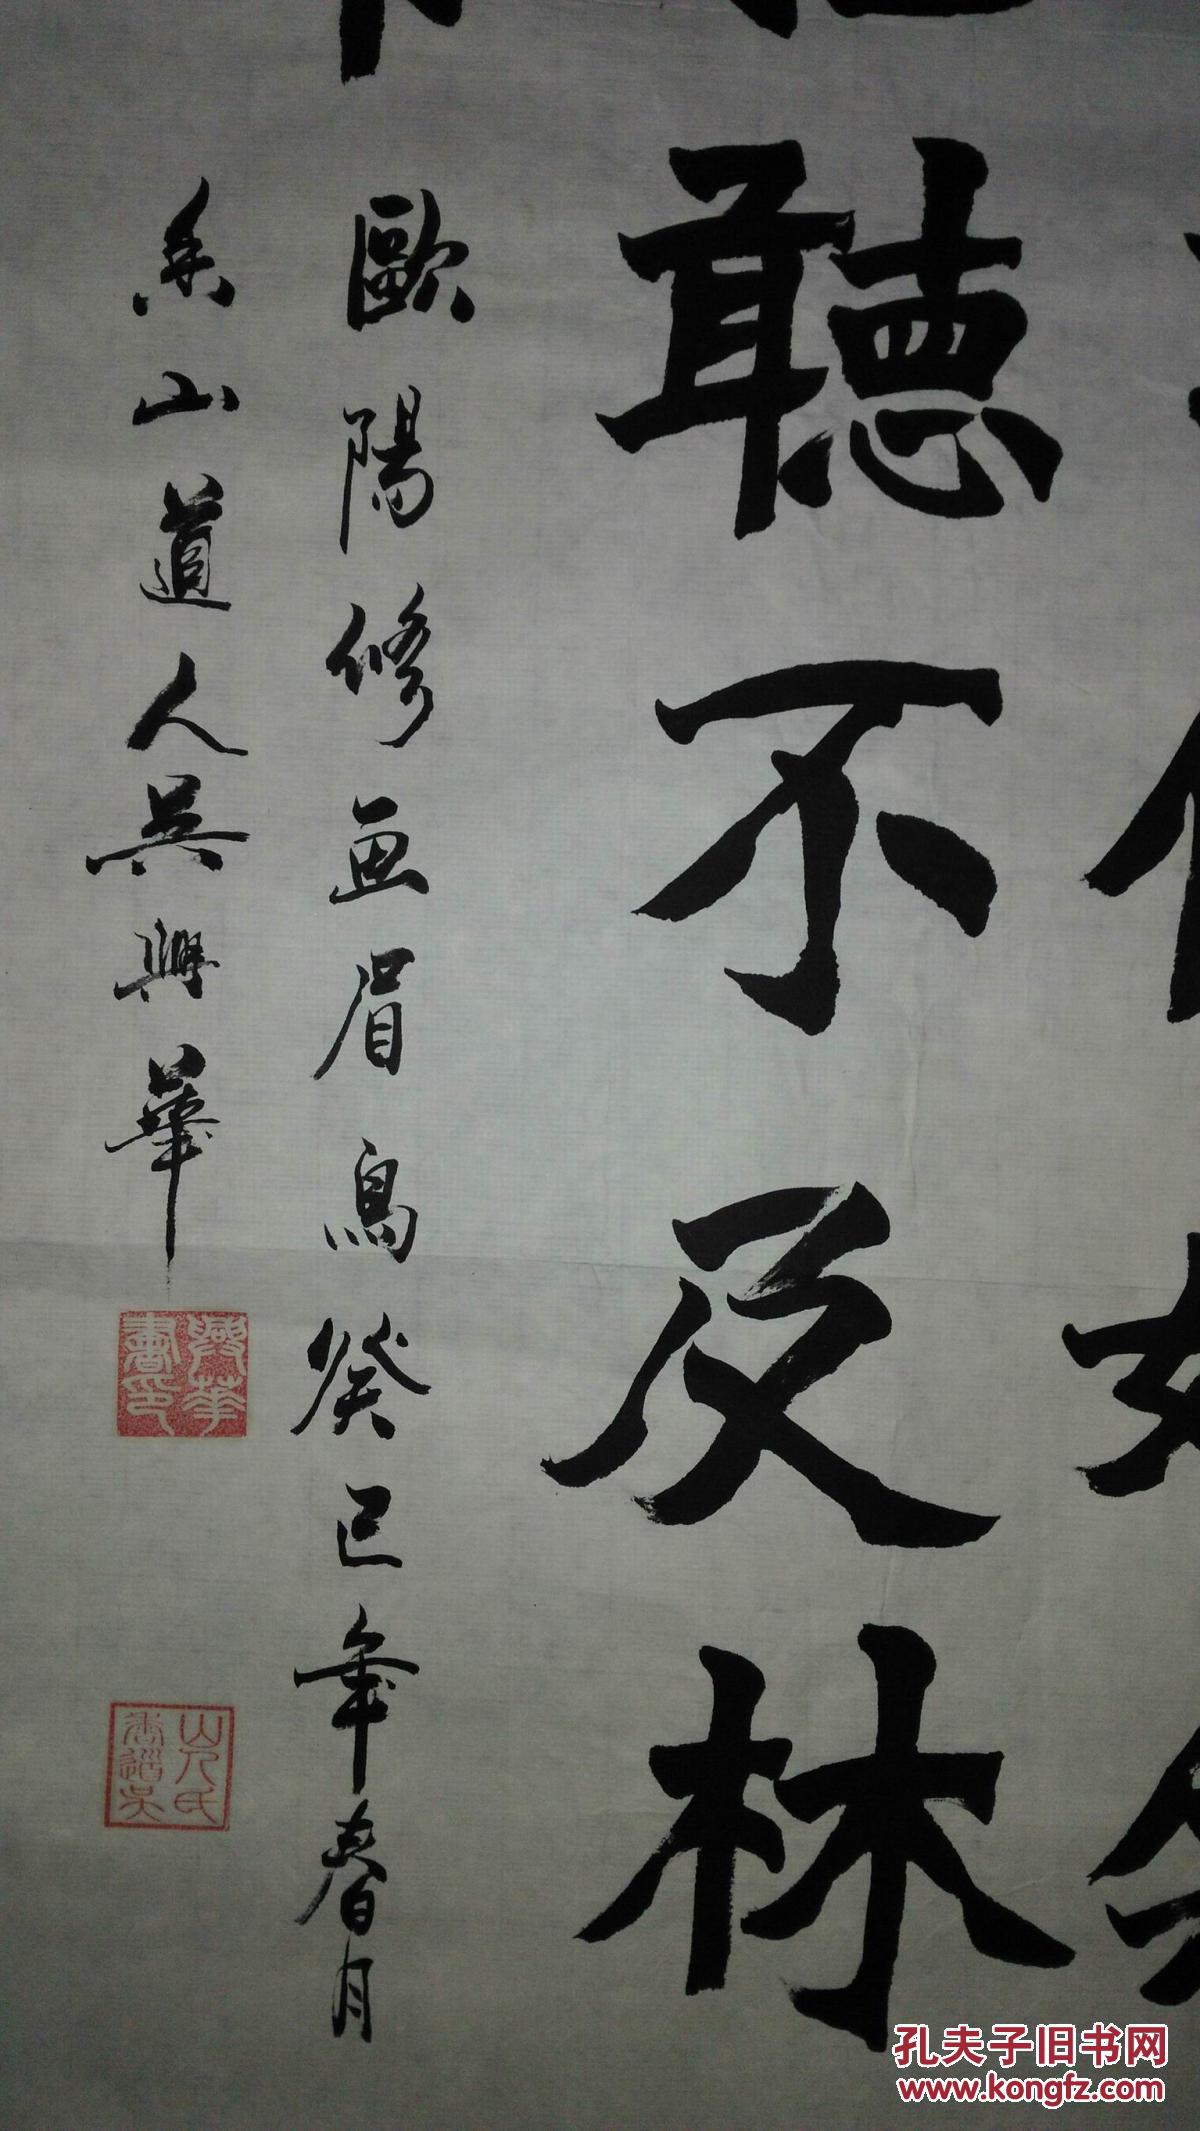 聽不及林
歐陽修画眉鳥癸巳年春月
香山道人吳興華
興華書印
香山道人吳氏
孔夫子旧书网
www.kongfz.com